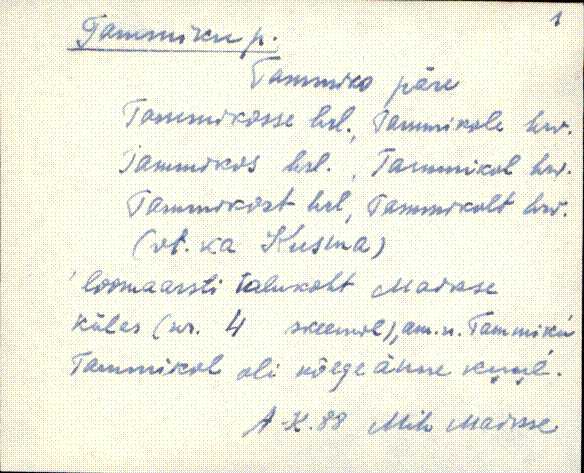 1
Tammiku p.
Tammiko päre
Tammikosse hrl., Tammikole hrv.
Tammikos hrl., Tammikol hrv.
Tammikost hrl, Tammikolt hrv.
(vt. ka Kusma)
loomaarsti talukoht Madise
külas (nr. 4 skeemil), am. n. Tammiku
Tammikol oli kõege ãnne
A-K. 88 Mih Madise